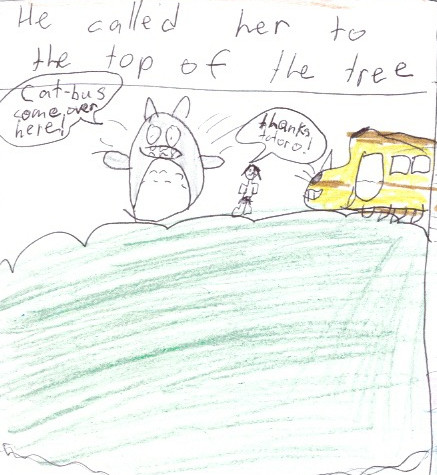 He called her to
the top of the tree
Cat-bus
come over
here!
thanks,
totoro!